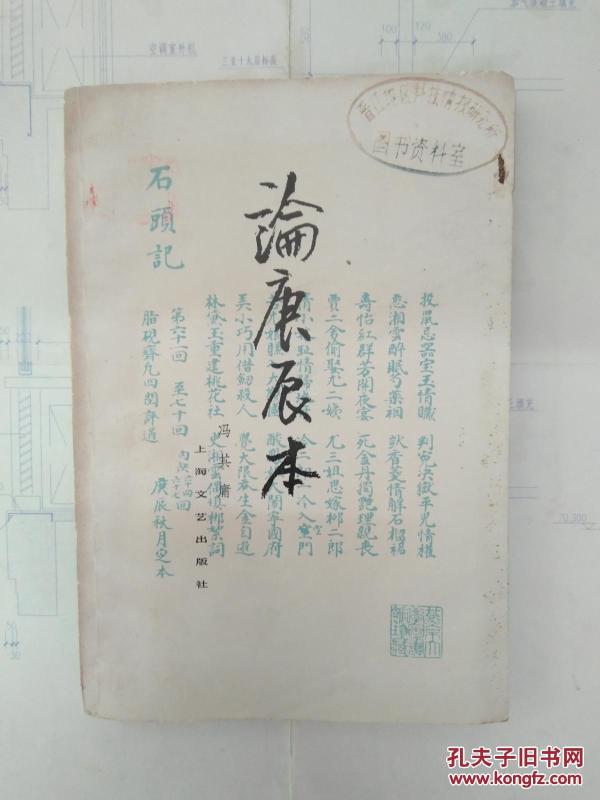 空调室外机
三至十九层标高
晋江地区科技情报研究所
图书资料室
論庚辰本
冯其庸
上海文艺出版社
石頭記
投鼠忌器宝玉情贜 判冤决獄平兒情權
憨湘雲醉眠芍藥裀 獃香菱情解石榴裙
壽怡紅群芳開夜宴 死金丹獨艷理親喪
賈二舍偷娶尤二姨 尤三姐思嫁柳二郎
冷入空門
閙寧國府
用借劒殺人 覺大限吞生金自逝
林黛玉重建桃花社 史湘雲偶填柳絮詞
第六十一回 至七十回
内缺六十四 六十七回
脂硯齋凡四閱評過 庚辰秋月定本
70.300
孔夫子旧书网
www.kongfz.com